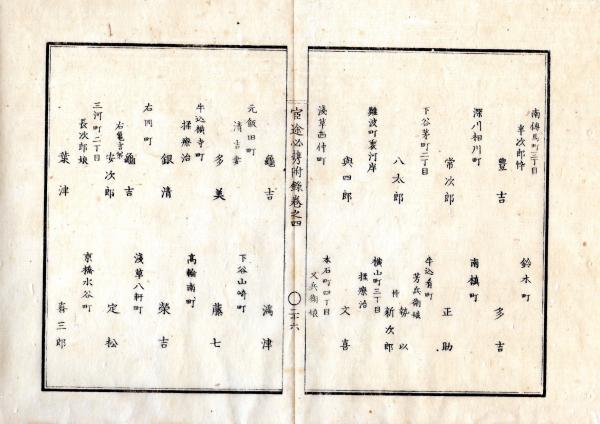 南傳馬町三丁目
半次郎忰
豊吉
鈴木町
多吉
深川相川町
常次郎
南槇町
正助
下谷茅町二丁目
八太郎
牛込肴町
芳兵衛娘
勢以
忰
新次郎
難波町裏河岸
與四郎
横山町三丁目
揉療治
文喜
淺草西仲町
本石町四丁目
又兵衛娘
官途必携附錄卷之四
二十六
元飯田町
清吉妻
龜吉
下谷山崎町
満津
牛込横寺町
揉療治
多美
高輪南町
藤七
右同町
銀清
淺草八軒町
榮吉
龜吉
右龜吉弟
安次郎
定松
三河町二丁目
長次郎娘
葉津
京橋水谷町
喜三郎